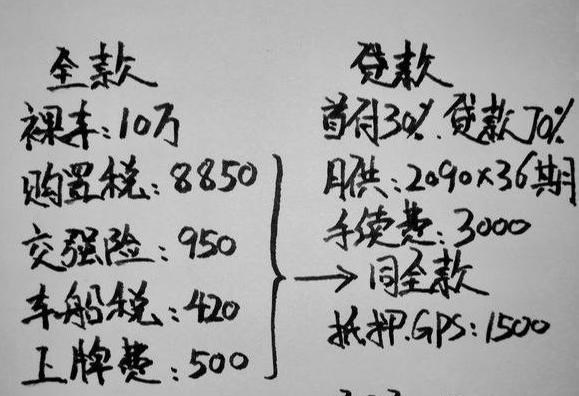 全款
裸车:10万
购置税:8850
交强险:950
车船税:420
上牌费:500
贷款
首付30%.贷款70%
月供:2090×36期
手续费:3000
同全款
抵押.GPS:1500